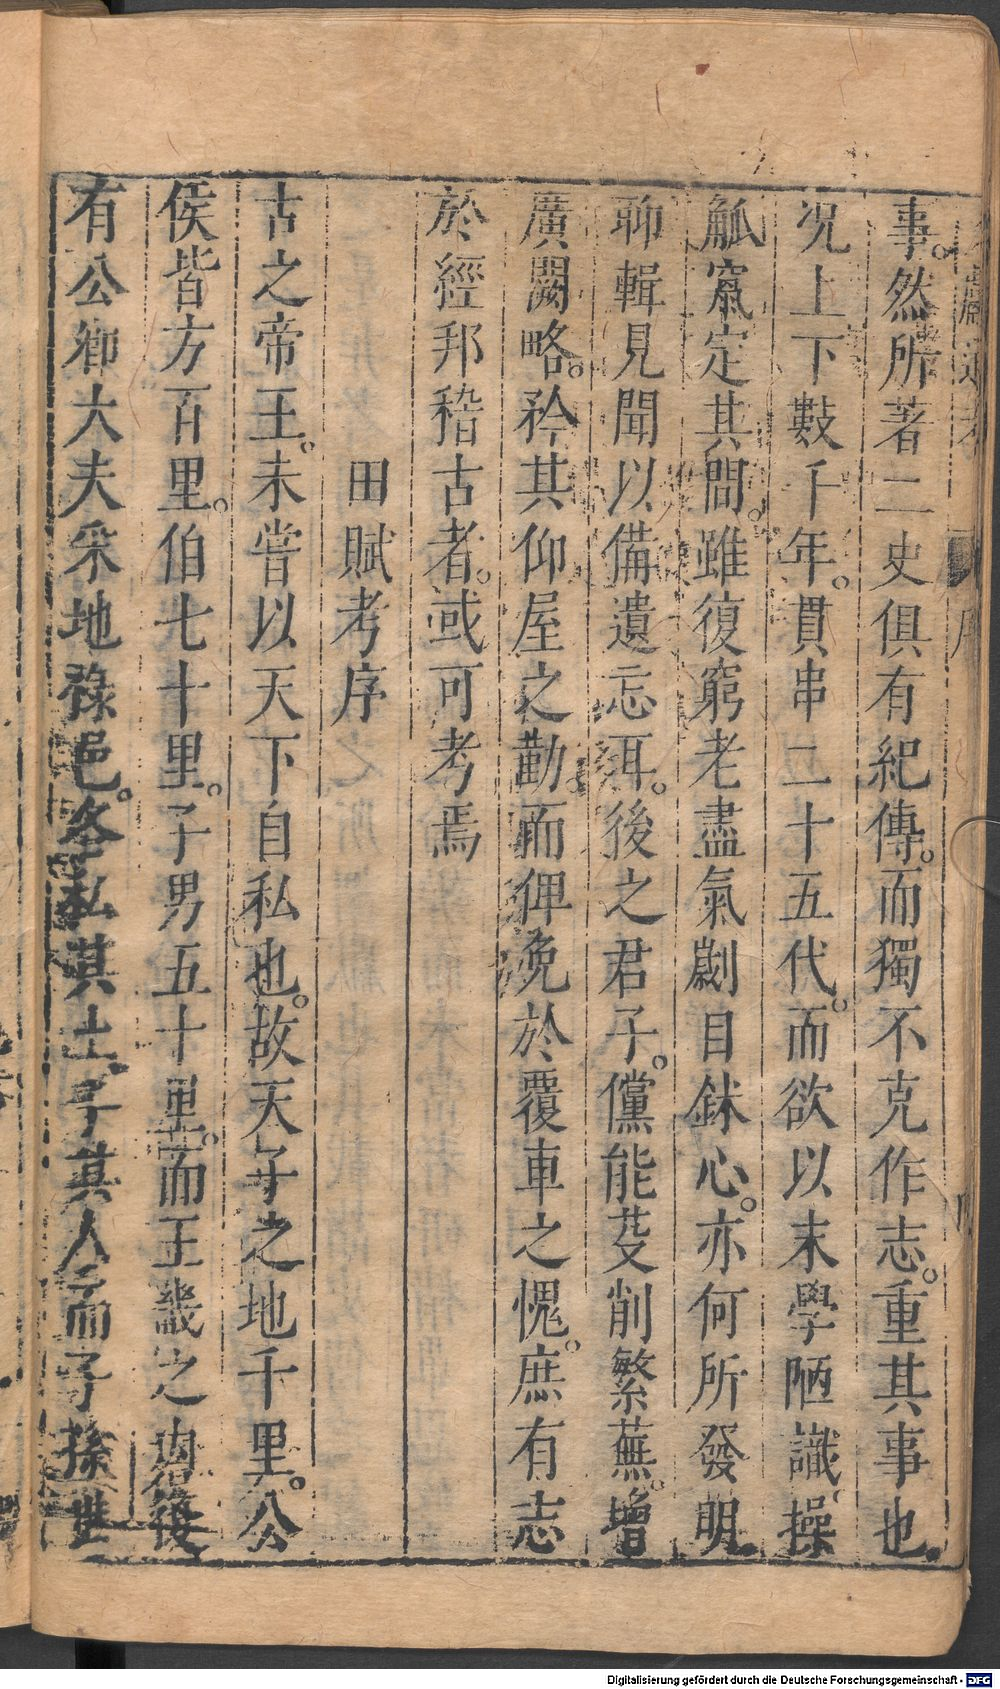 事。然所著二史俱有紀傳。而獨不克作志。重其事也。
况上下數千年。貫串二十五代。而欲以末學陋識。操
觚竄定其間。雖復窮老盡氣。劌目鉥心。亦何所發明。
聊輯見聞。以備遺忘耳。後之君子。儻能芟削繁蕪。增
廣闕略。矜其仰屋之勤。而俾免於覆車之愧。庶有志
於經邦稽古者。或可考焉
田賦考序
古之帝王。未嘗以天下自私也。故天子之地千里。公
侯皆方百里。伯七十里。子男五十里。而王畿之內復
有公卿大夫采地祿邑。各私其土子其人而子孫世
Digitalisierung gefördert durch die Deutsche Forschungsgemeinschaft - DFG